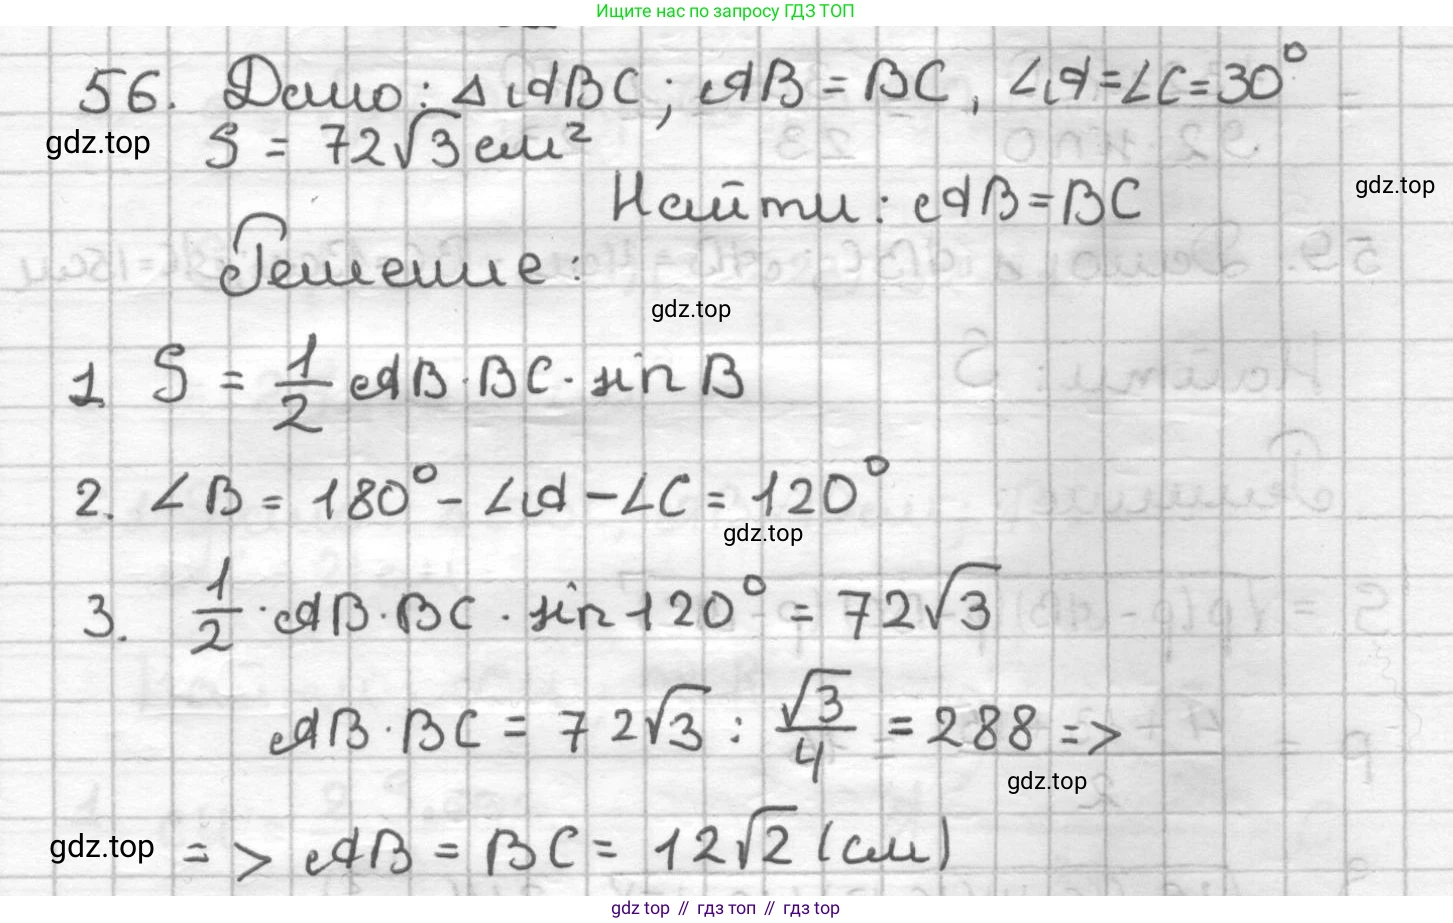 Ищите нас по запросу ГДЗ ТОП
56. Дано: △ABC; AB = BC, ∠A=∠C=30°
gdz.top S = 72√3 см²
Найти: AB=BC gdz.top
Решение:
gdz.top
1. S = 1/2 AB·BC·sin B
2. ∠B = 180° - ∠A - ∠C = 120°
gdz.top
3. 1/2 · AB·BC · sin 120° = 72√3
AB·BC = 72√3 : √3/4 = 288 =>
gdz.top
gdz.top => AB = BC = 12√2 (см)
gdz top // гдз топ // гдз top